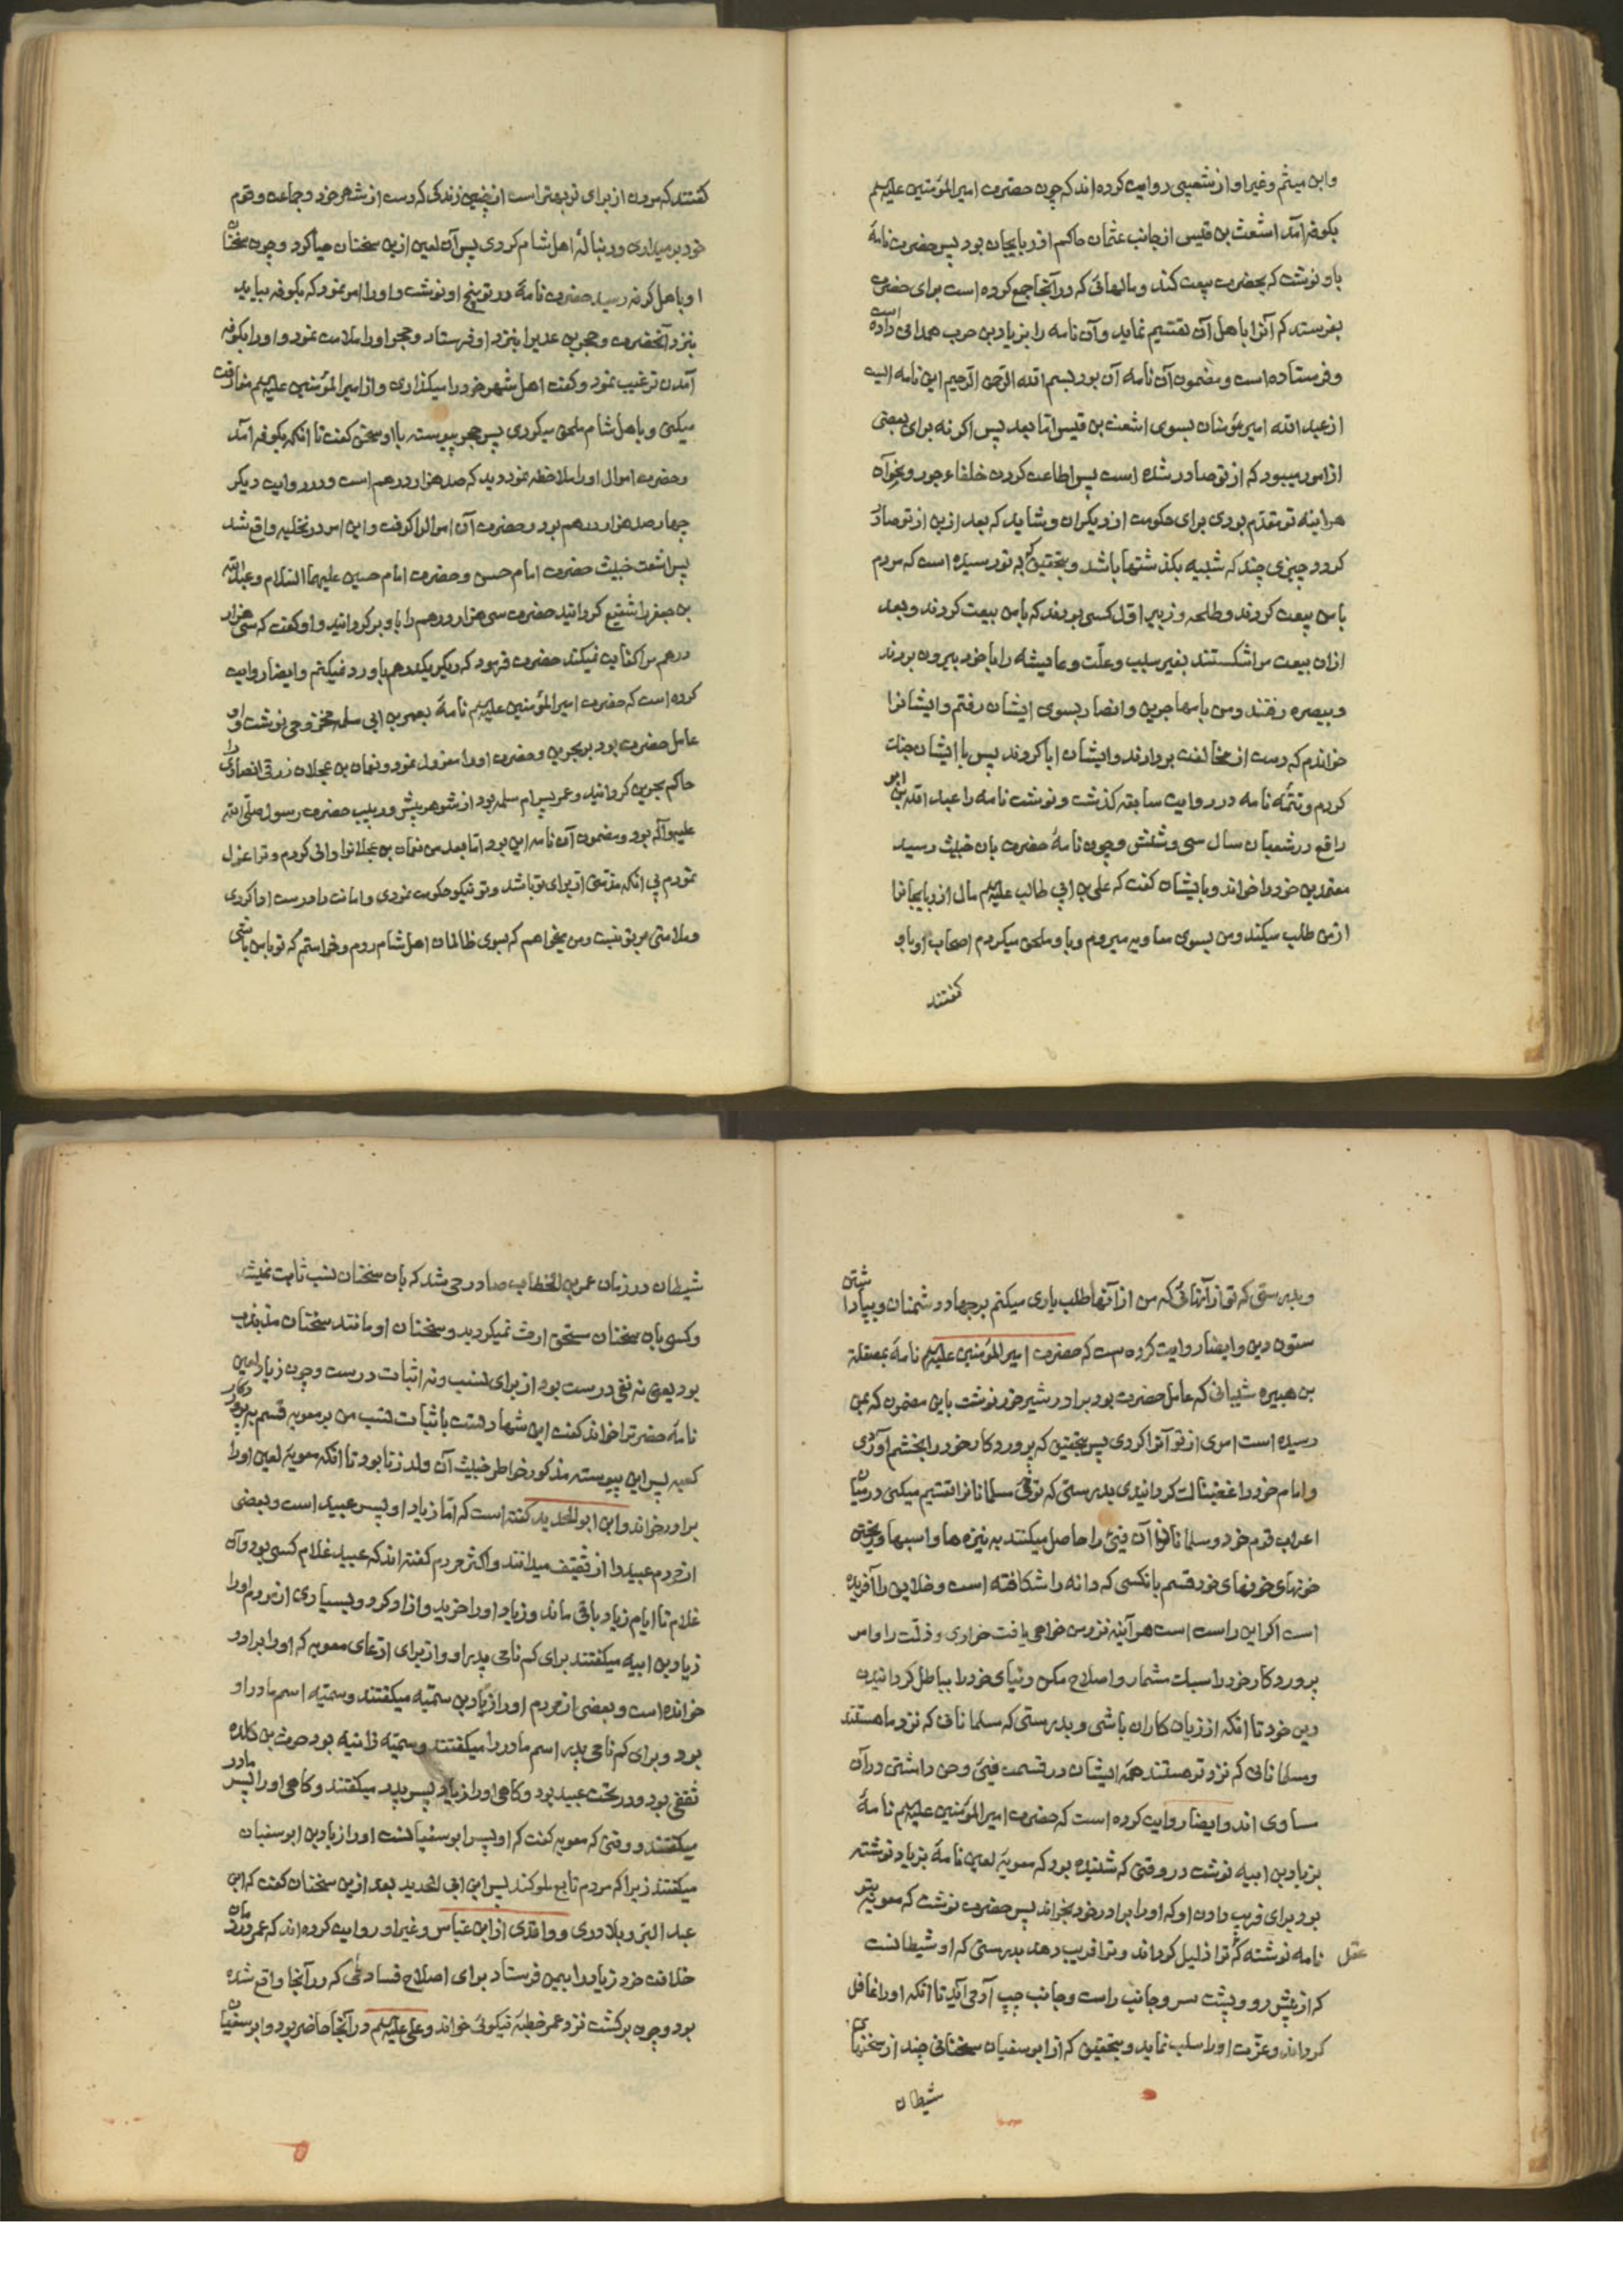 وابن میثم و غیر او از شعبی روایت کرده‌اند که چون حضرت امیرالمؤمنین علیه‌السلم
بکوفه آمد اشعث بن قیس از جانب عثمان حاکم اذربایجان بود پس حضرت نامهٔ
باو نوشت که بحضرت بیعت کند و مالهائی که در آنجا جمع کرده است برای حضرت
بفرستد که آنرا باهل آن تقسیم نماید و آن نامه را بزیاد بن حرب همدانی داده است
و فرستاده است و مضمون آن نامه آن بود بسم الله الرحمن الرحیم این نامه ایست
از عبد الله امیر مؤمنان بسوی اشعث بن قیس اما بعد پس اکر نه برای بعضی
از امور میبود که از تو صادر شده است پس اطاعت کردن خلفاء جور و بخوآن
هراینه تو مقدم بودی برای حکومت از دیکران و شاید که بعد ازین از تو صادر
کردد چیزی چند که شبیه بکذشتها باشد و بتحقیق که به تو رسیده است که مردم
با من بیعت کردند و طلحه و زبیر اول کسی بودند که با من بیعت کردند و بعد
ازان بیعت مرا شکستند بغیر سبب و علت و عایشه را با خود بیرون بردند
و ببصره رفتند و من با مهاجرین و انصار بسوی ایشان رفتم و ایشانرا
خواندم که دست از مخالفت بردارند و ایشان ابا کردند پس با ایشان جنک
کردم و تتمهٔ نامه در روایت سابقه کذشت و نوشت نامه را عبد الله بن ابو
رافع در شعبان سال سی و شش و چون نامهٔ حضرت بان خبیث رسید
معتمدین خود را خواند و بایشان کفت که علی بن ابی طالب علیه‌السلم مال اذربایجانرا
از من طلب میکند و من بسوی معاویه میروم و باو ملحق میکردم اصحاب او باو
کفتند
کفتند که مردن از برای تو بهتر است از چنین زندکی که دست از شهر خود و جماعت و قوم
خود برمیداری و دنبالهٔ اهل شام کردی پس آن لعین ازین سخنان حیا کرد و چون سخنان
او باهل کوفه رسید حضرت نامهٔ در توبیخ او نوشت و او را امر نمود که بکوفه بیاید
بنزد آنحضرت و حجر بن عدیرا بنزد او فرستاد و حجر او را ملامت نمود و او را بکوفه
آمدن ترغیب نمود و کفت اهل شهر خود را میکذاری و از امیرالمؤمنین علیه‌السلم مفارقت
میکنی و باهل شام ملحق میکردی پس حجر پیوسته باو سخن کفت تا انکه بکوفه آمد
و حضرت اموال او را ملاحظه نمود دید که صد هزار درهم است و در روایت دیکر
چهار صد هزار درهم بود و حضرت آن اموالرا کرفت و این امر در نخلیه واقع شد
پس اشعث خبیث حضرت امام حسن و حضرت امام حسین علیهما السلام و عبدالله
بن جعفر را شفیع کردانید حضرت سی هزار درهم را باو برکردانید و او کفت که سی هزار
درهم مرا کفایت نمیکند حضرت فرمود که دیکر یکدرهم باو رد نمیکنم و ایضا روایت
کرده است که حضرت امیرالمؤمنین علیه‌السلم نامهٔ بعمر بن ابی سلمه مخزومی نوشت و او
عامل حضرت بود بر بحرین و حضرت او را معزول نمود و نعمان بن عجلان زرقی انصاری را
حاکم بحرین کردانید و عمر پسر ام سلمه بود از شوهر پیش و ربیب حضرت رسول صلی الله
علیه وآله بود و مضمون آن نامه این بود اما بعد من نعمان بن عجلانرا والی کردم و ترا عزل
نمودم بی انکه مذمتی از برای تو باشد و تو نیکو حکومت نمودی و امانت را درست ادا کردی
و ملامتی بر تو نیست و من میخواهم که بسوی ظالمان اهل شام روم و خواستم که تو با من باشی
و بدرستی که تو از آنهائی که من از آنها طلب یاری میکنم بر جهاد دشمنان و بپا داشتن
ستون دین و ایضا روایت کرده است که حضرت امیرالمؤمنین علیه‌السلم نامهٔ بمصقلة
بن هبیره شیبانی که عامل حضرت بود بر اردشیر خره نوشت باین مضمون که بمن
رسیده است امری از تو آنرا کردی پس بتحقیق که پروردکار خود را بخشم آوردی
و امام خود را غضبناک کردانیدی بدرستی که تو فئ مسلمانانرا تقسیم میکنی در میان
اعراب قوم خود و مسلمانان آن فئ را حاصل میکنند به نیزه‌ها و اسبها و ریختن
خونهای خود قسم بانکسی که دانه را شکافته است و خلایق را آفریده
است اکر این راست است هر آینه نزد من خواهی یافت خواری و ذلت را و امر
پروردکار خود را سبک مشمار و اصلاح مکن دنیای خود را بباطل کردانیدن
دین خود تا انکه از زیان کاران باشی و بدرستی که مسلمانانی که نزد ما هستند
و مسلمانانی که نزد تو هستند همه ایشان در قسمت فئ و حق داشتن در آن
مساوی اند و ایضا روایت کرده است که حضرت امیرالمؤمنین علیه‌السلم نامهٔ
بزیاد بن ابیه نوشت در وقتی که شنیده بود که معویهٔ لعین نامهٔ بزیاد نوشته
بود برای فریب دادن او که او را برادر خود بخواند پس حضرت نوشت که معویه بتو
نامه نوشته که عقل ترا ذلیل کرداند و ترا فریب دهد بدرستی که او شیطانست
که از پیش رو و پشت سر و جانب راست و جانب چپ آدمی آید تا انکه او را غافل
کرداند و عزّت او را سلب نماید و بتحقیق که از ابو سفیان سخنانی چند از سخنهای
شیطان
شیطان در زمان عمر بن الخطاب صادر می شد که بان سخنان نسب ثابت نمیشد
و کسی بان سخنان مستحق ارث نمیکردید و سخنان او مانند سخنان مذبذب
بود یعنی نه نفی درست بود از برای نسب و نه اثبات درست و چون زیاد لعین
نامهٔ حضرترا خواند کفت این شهادتست باثبات نسب من بر معویه قسم به پروردکار
کعبه پس این پیوسته مذکور خواطر خبیث آن ولد زنا بود تا انکه معویهٔ لعین او را
برادر خواند و ابن ابو الحدید کفته است که اما زیاد او پسر عبید است و بعضی
از مردم عبید را از ثقیف میدانند و اکثر مردم کفته اند که عبید غلام کسی بود و آن
غلام تا ایام زیاد باقی ماند و زیاد او را خرید و ازاد کرد و بسیاری از مردم او را
زیاد بن ابیه میکفتند برای کم نامی پدر او و از برای ادعای معویه که او را برادر
خوانده است و بعضی از مردم او را زیاد بن سمیّه میکفتند و سمیّه اسم مادر او
بود و برای کم نامی پدر اسم مادر را میکفتند و سمیّه زانیه بود حرث بن کلده
ثقفی بود و در تحت عبید بود و کاهی او را زیاد پسر پدر میکفتند و کاهی او را پسر مادر
میکفتند و وقتی که معویه کفت که او پسر ابو سفیانست او را زیاد بن ابو سفیان
میکفتند زیرا که مردم تابع ملوکند پس ابن ابی الحدید بعد ازین سخنان کفت که ابن
عبد البر و بلاذری و واقدی از ابن عباس و غیر او روایت کرده اند که عمر در زمان
خلافت خود زیاد را بیمن فرستاد برای اصلاح فسادی که در آنجا واقع شده
بود و چون برکشت نزد عمر خطبهٔ نیکوئی خواند و علی علیه‌السلم در آنجا حاضر بود و ابو سفیان